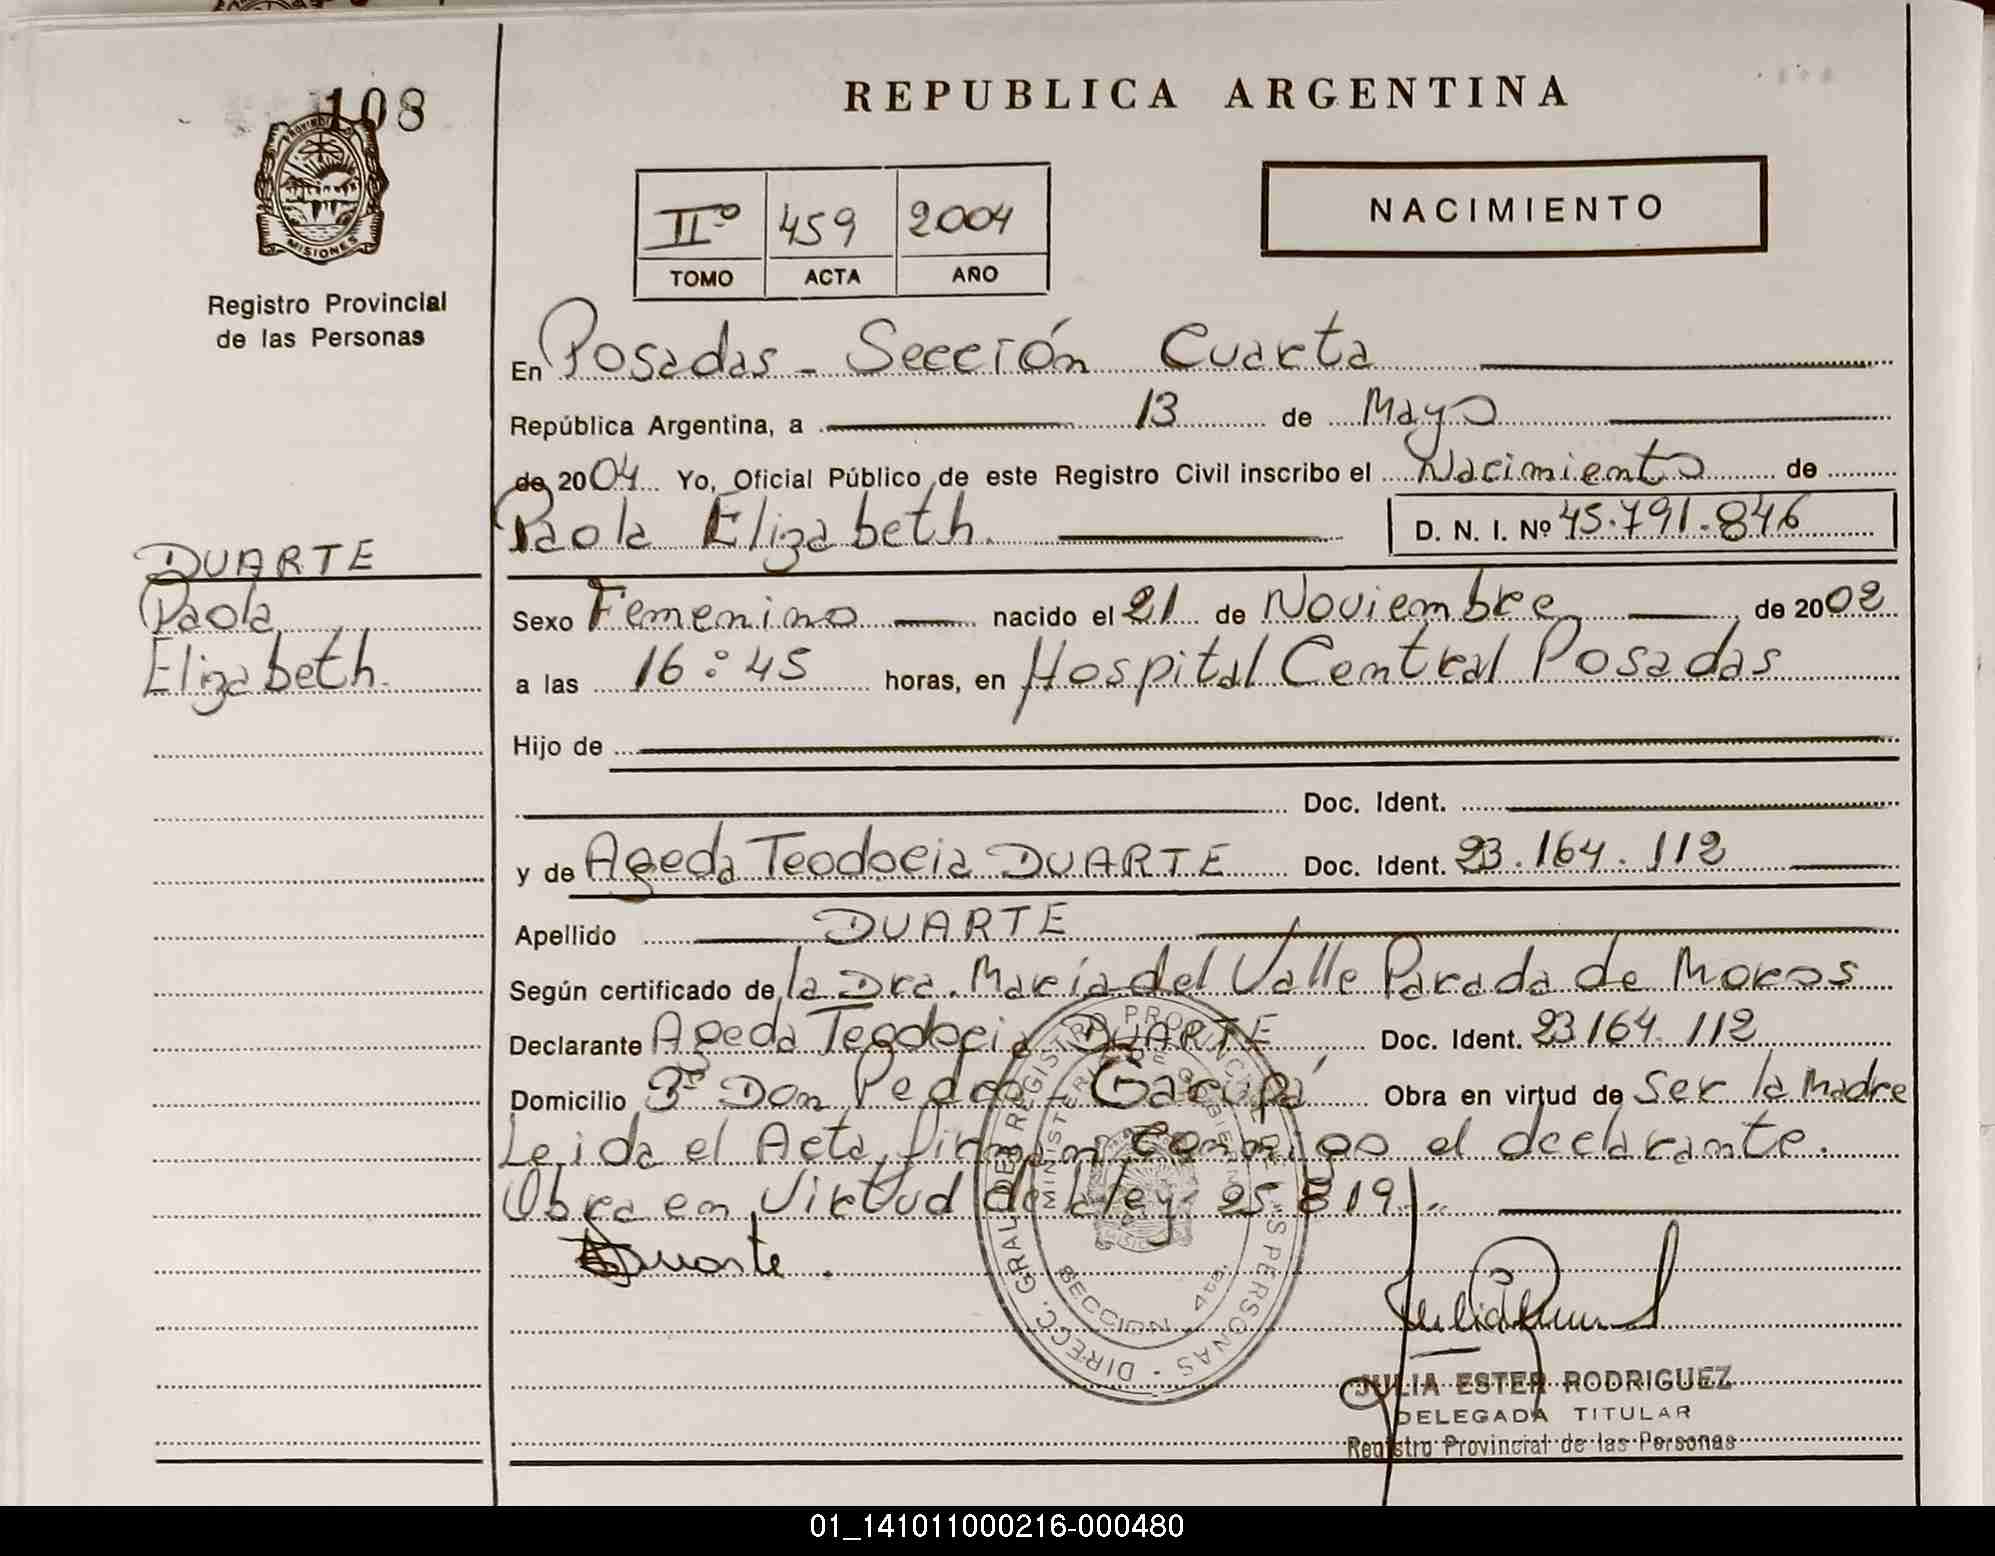 108
PROVINCIA DE
MISIONES
Registro Provincial
de las Personas
REPUBLICA ARGENTINA
IIº 459 2004
TOMO ACTA AÑO
NACIMIENTO
En Posadas - Sección Cuarta
República Argentina, a 13 de Mayo
de 2004 Yo, Oficial Público de este Registro Civil inscribo el Nacimiento de
Paola Elizabeth. D. N. I. Nº 45.791.846
DUARTE
Paola
Elizabeth.
Sexo Femenino nacido el 21 de Noviembre de 2002
a las 16:45 horas, en Hospital Central Posadas
Hijo de
Doc. Ident.
y de Ageda Teodocia DUARTE Doc. Ident. 23.164.112
Apellido DUARTE
Según certificado de la Dra. María del Valle Parada de Moros
Declarante Ageda Teodocia DUARTE Doc. Ident. 23164.112
Domicilio Bº Don Pedro - Garupá Obra en virtud de ser la madre
Leida el Acta, firman conmigo el declarante.
Obra en Virtud de la ley 25819.
Duarte.
DIRECC. GRAL. DEL REGISTRO PROVINCIAL DE LAS PERSONAS
MINISTERIO DE GOBIERNO
SECCION 4ta.
JULIA ESTER RODRIGUEZ
DELEGADA TITULAR
Registro Provincial de las Personas
01_141011000216-000480